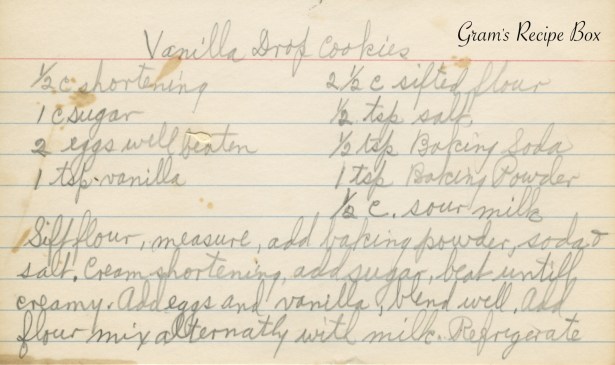 Gram's Recipe Box
Vanilla Drop Cookies
1/2 c shortening
1 c sugar
2 eggs well beaten
1 tsp. vanilla
2 1/2 c sifted flour
1/2 tsp salt,
1/2 tsp Baking Soda
1 tsp Baking Powder
1/2 c. sour milk
Sift flour, measure, add baking powder, soda &
salt. Cream shortening, add sugar, beat untill
creamy. Add eggs and vanilla, blend well. Add
flour mix alternatly with milk. Refrigerate